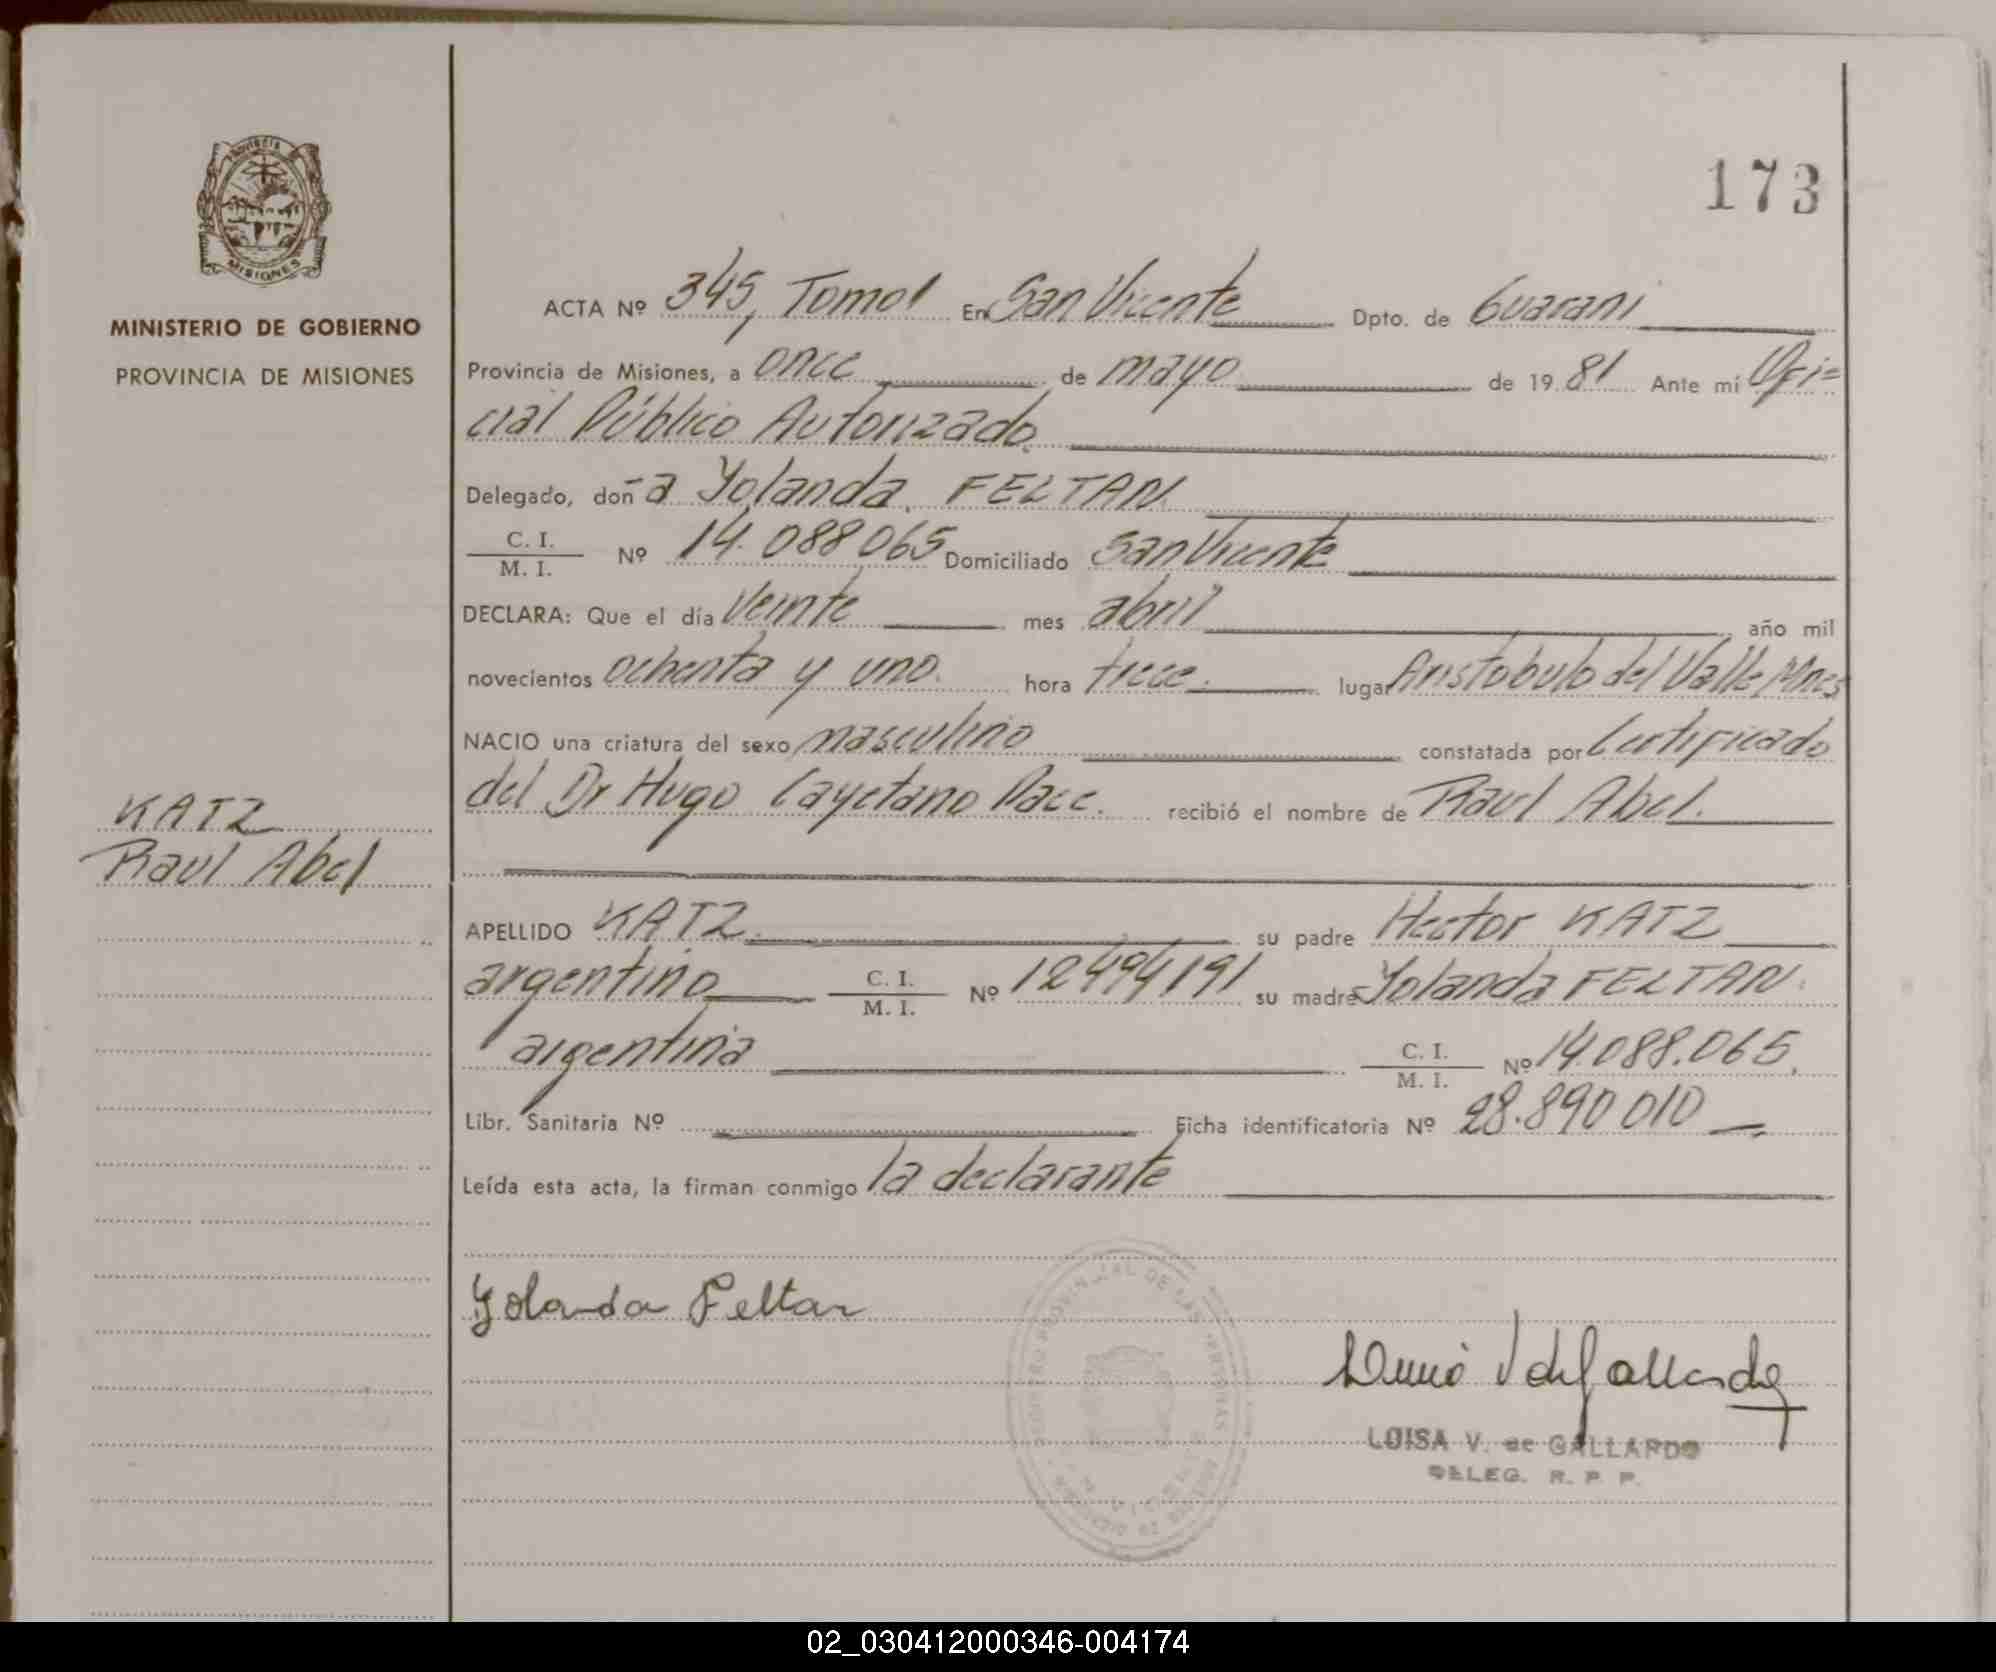 173
PROVINCIA DE
MISIONES
MINISTERIO DE GOBIERNO
PROVINCIA DE MISIONES
KATZ
Raul Abel
ACTA Nº 345, Tomo I En San Vicente Dpto. de Guarani
Provincia de Misiones, a once de mayo de 1981 Ante mí Ofi=
cial Público Autorizado.
Delegado, doña Yolanda FELTAN
C. I. / M. I. Nº 14.088065 Domiciliado San Vicente
DECLARA: Que el día Veinte mes abril año mil
novecientos ochenta y uno. hora trece. lugar Aristobulo del Valle Mnes
NACIO una criatura del sexo masculino constatada por Certificado
del Dr Hugo Cayetano recibió el nombre de Raul Abel.
APELLIDO KATZ. su padre Hector KATZ
argentino C. I. / M. I. Nº 12494191 su madre Yolanda FELTAN.
argentina C. I. / M. I. Nº 14.088.065,
Libr. Sanitaria Nº Ficha identificatoria Nº 28.890010
Leída esta acta, la firman conmigo la declarante
Yolanda Feltan
REGISTRO PROVINCIAL DE LAS PERSONAS
LUISA V. de GALLARDO
DELEG. R. P. P.
02_030412000346-004174